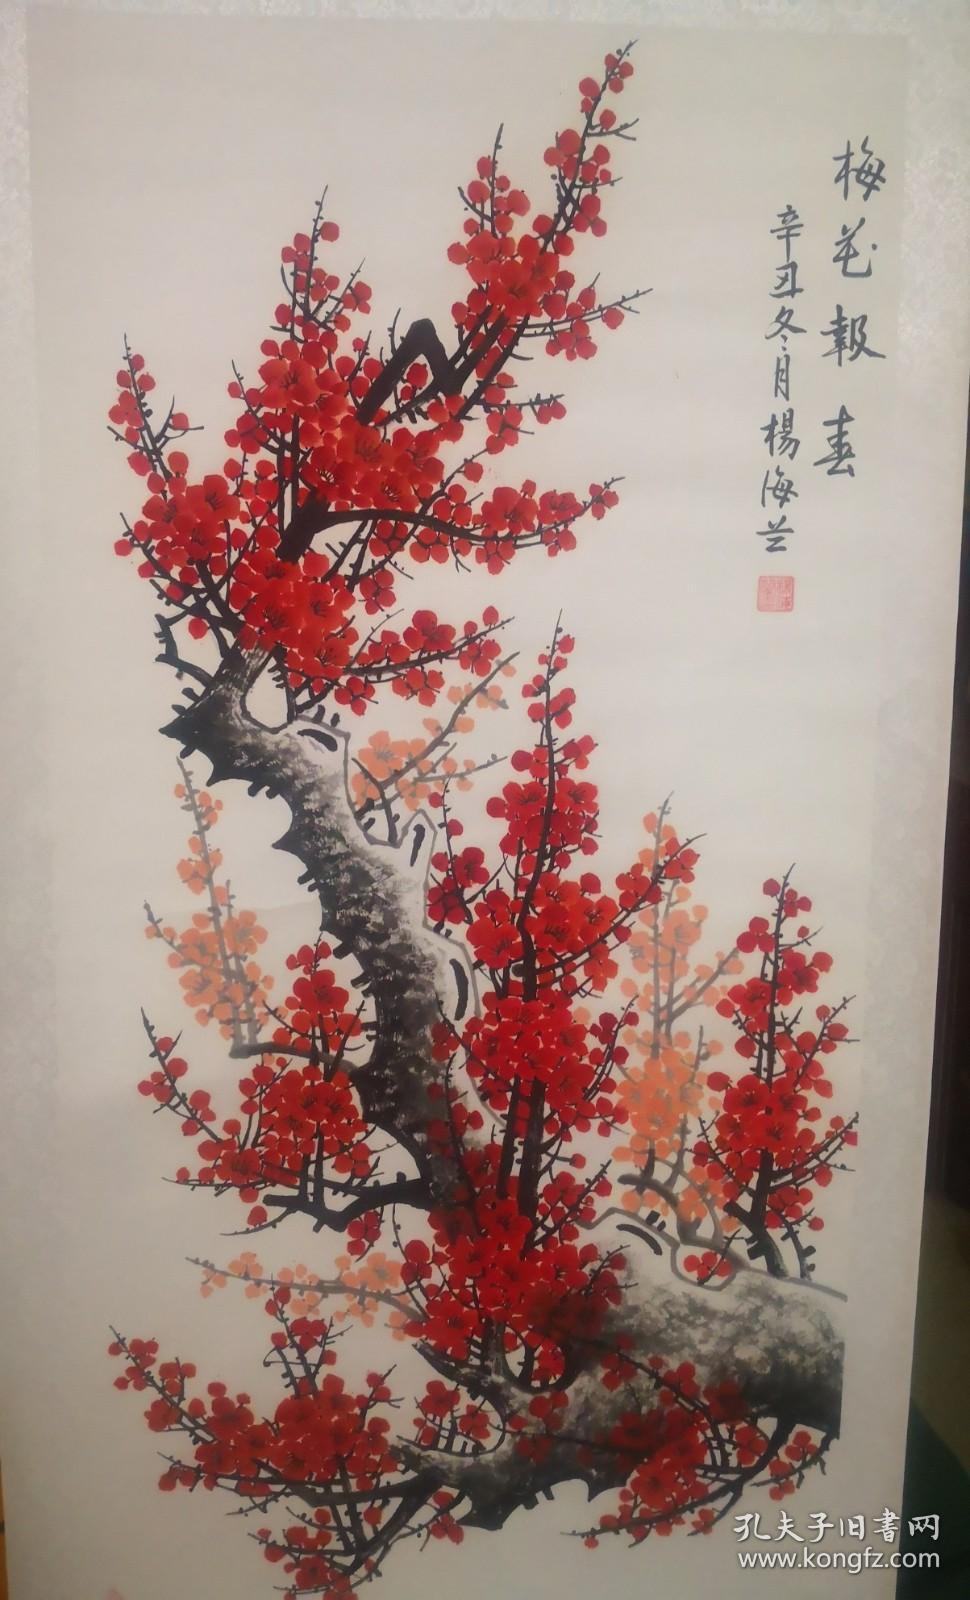 梅花報春
辛丑冬月楊海兰
孔夫子旧書网
www.kongfz.com